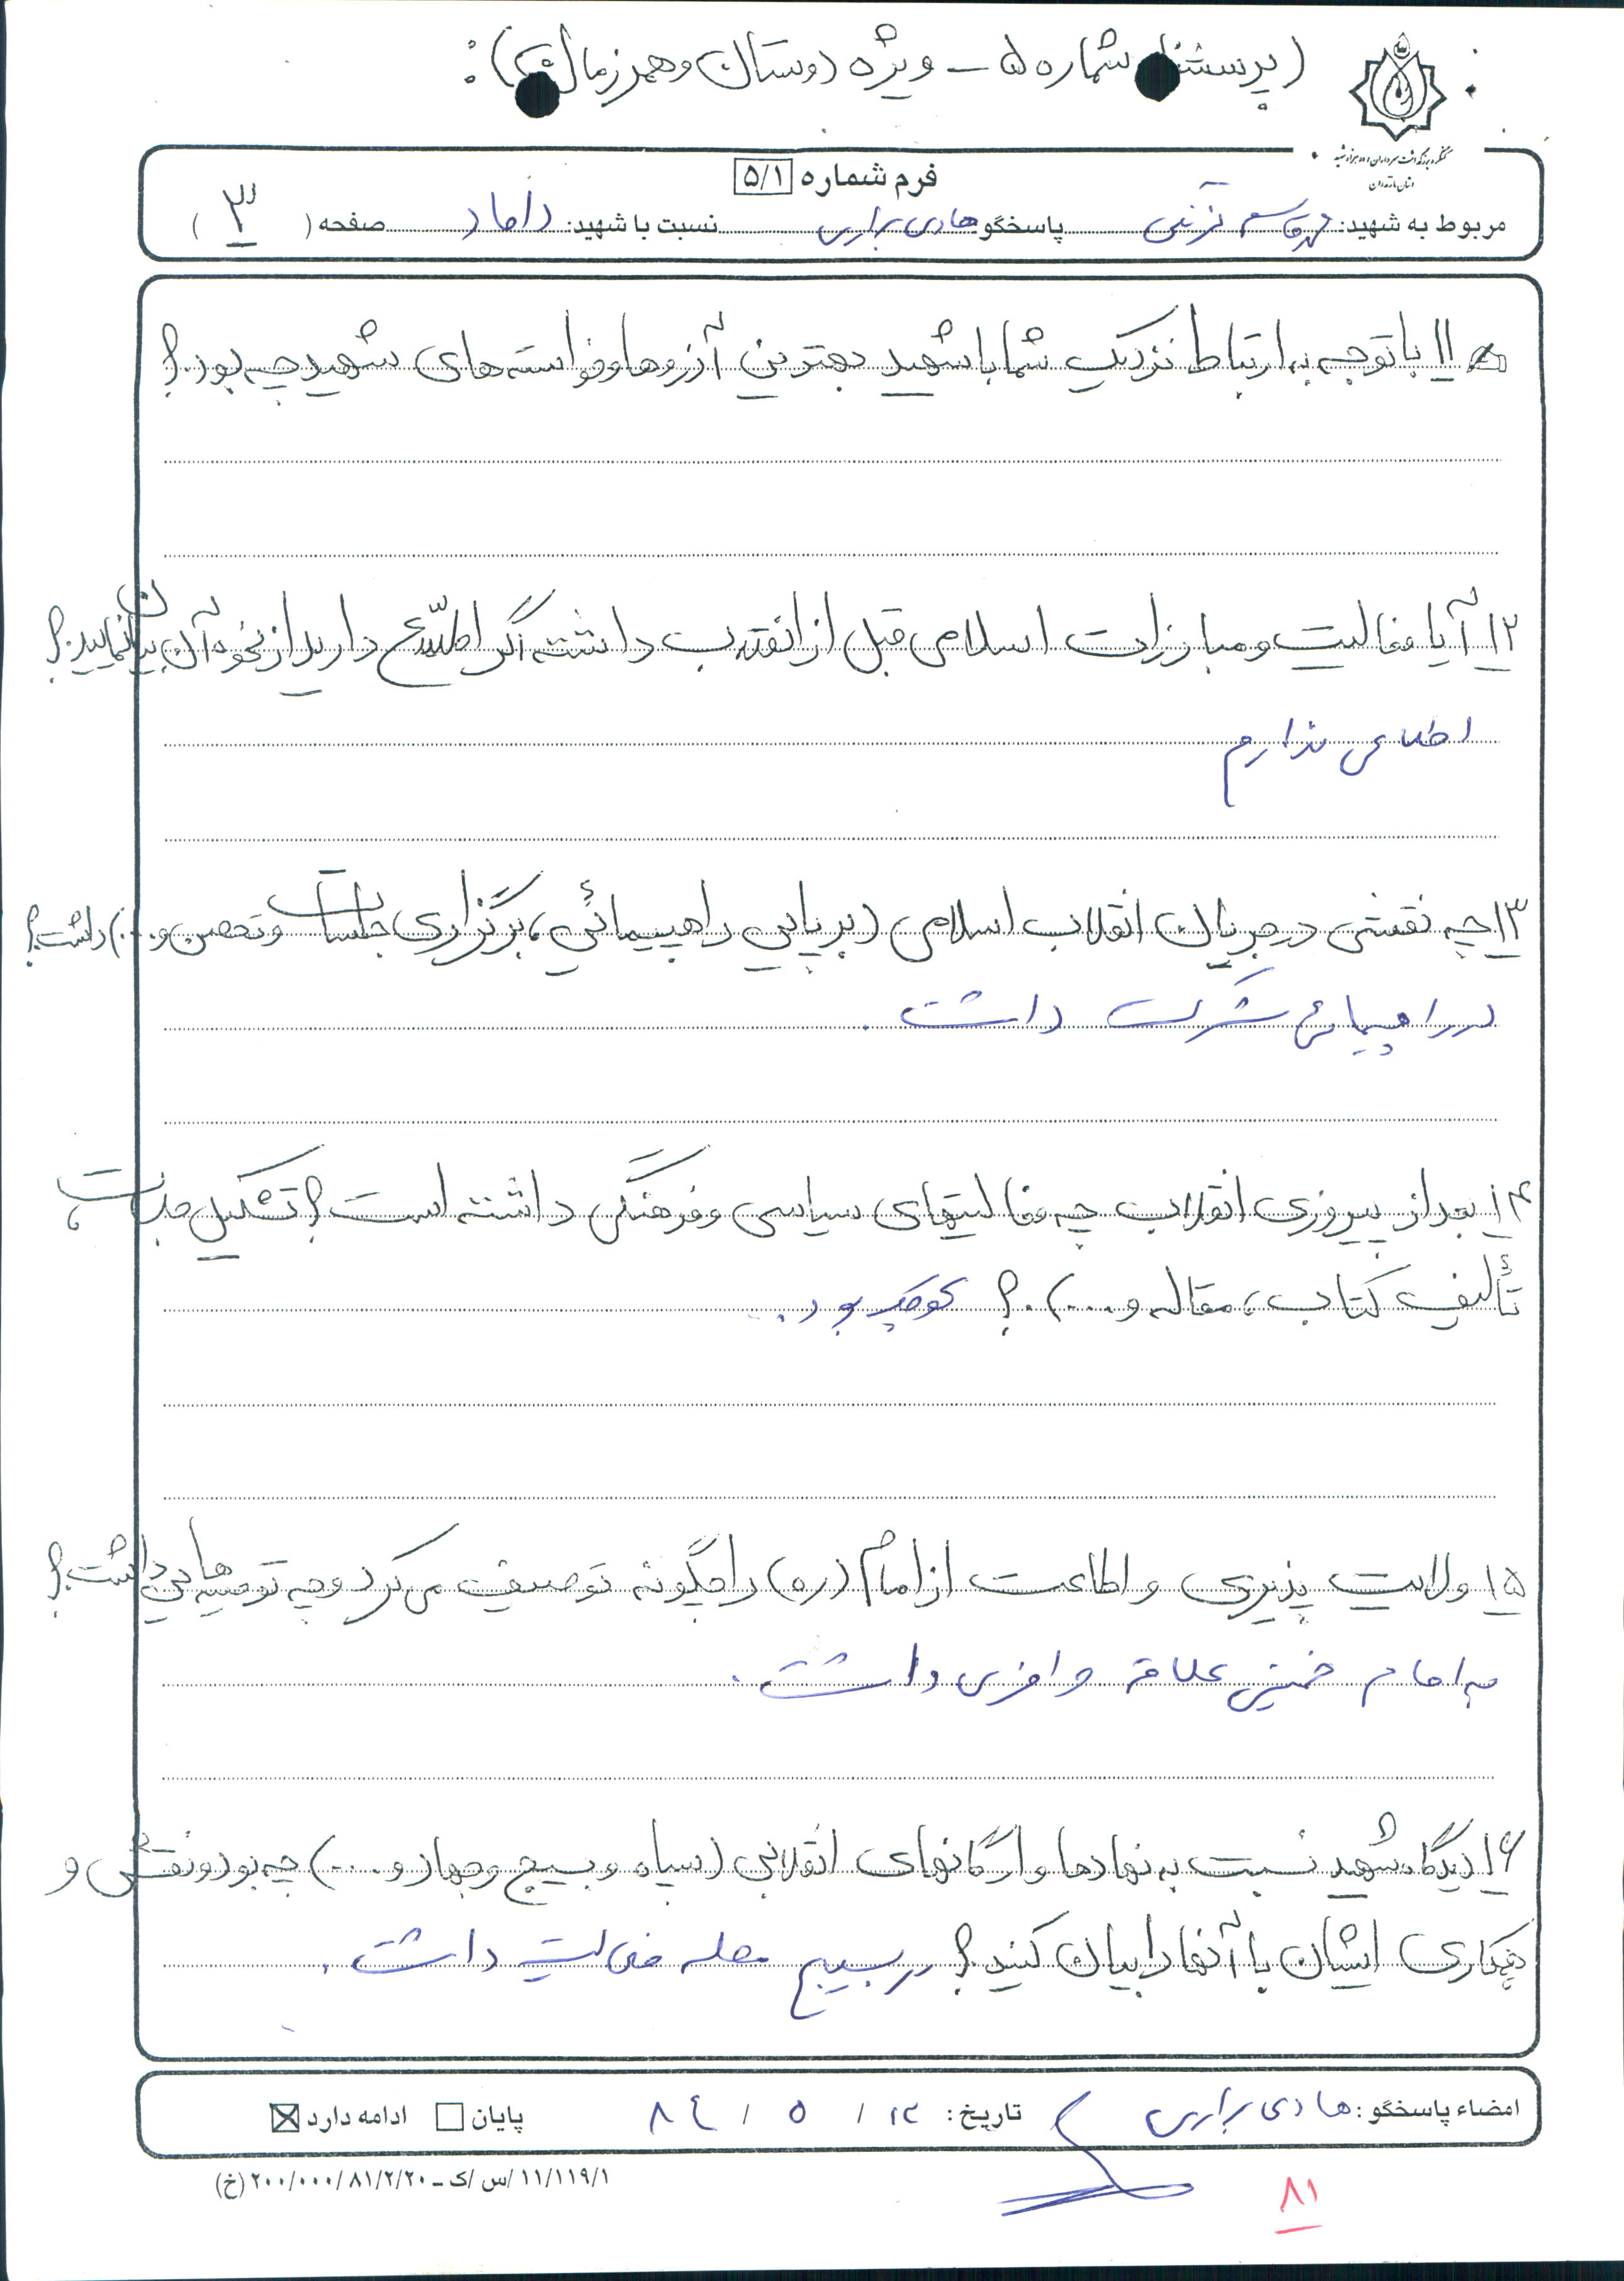 (پرسشنامه شماره ۵ – ویژه دوستان و همرزمان):
کنگره بزرگداشت سرداران و ۱۰۰۰۰ هزار شهید
استان مازندران
فرم شماره ۵/۱
مربوط به شهید: محمد قاسم پاسخگو هادی براری نسبت با شهید: داماد صفحه ( ۳ )
۱۱ با توجه به ارتباط نزدیک شما با شهید بهترین آرزوها و خواسته های شهید چه بود؟
۱۲ آیا فعالیت و مبارزات اسلامی قبل از انقلاب داشته اگر اطلاع دارید از نحوه آن بیان نمایید؟
اطلاعی ندارم
۱۳ چه نقشی در جریان انقلاب اسلامی (برپایی راهپیمائی، برگزاری جلسات و تحصن و....) داشت؟
در راهپیمائی شرکت داشت.
۱۴ بعد از پیروزی انقلاب چه فعالیتهای سیاسی و فرهنگی داشته است؟ (تشکیل جلسات،
تألیف کتاب، مقاله و....)؟ کوچک بود.
۱۵ ولایت پذیری و اطاعت از امام (ره) را چگونه توصیف می کرد و چه توصیه هایی داشت؟
به امام خمینی علاقه وافری داشت.
۱۶ دیدگاه شهید نسبت به نهادها و ارگانهای انقلابی (سپاه و بسیج و جهاد و....) چه بود و نقش و
همکاری ایشان با آنها را بیان کنید؟ در بسیج محله فعالیت داشت.
امضاء پاسخگو: هادی براری تاریخ: ۱۲ / ۵ / ۸۴ پایان ☐ ادامه دارد ☒
۱۱/۱۱۹/۱ /س /ک – ۲۰۰/۰۰۰/۸۱/۲/۲۰ (خ)
۸۱